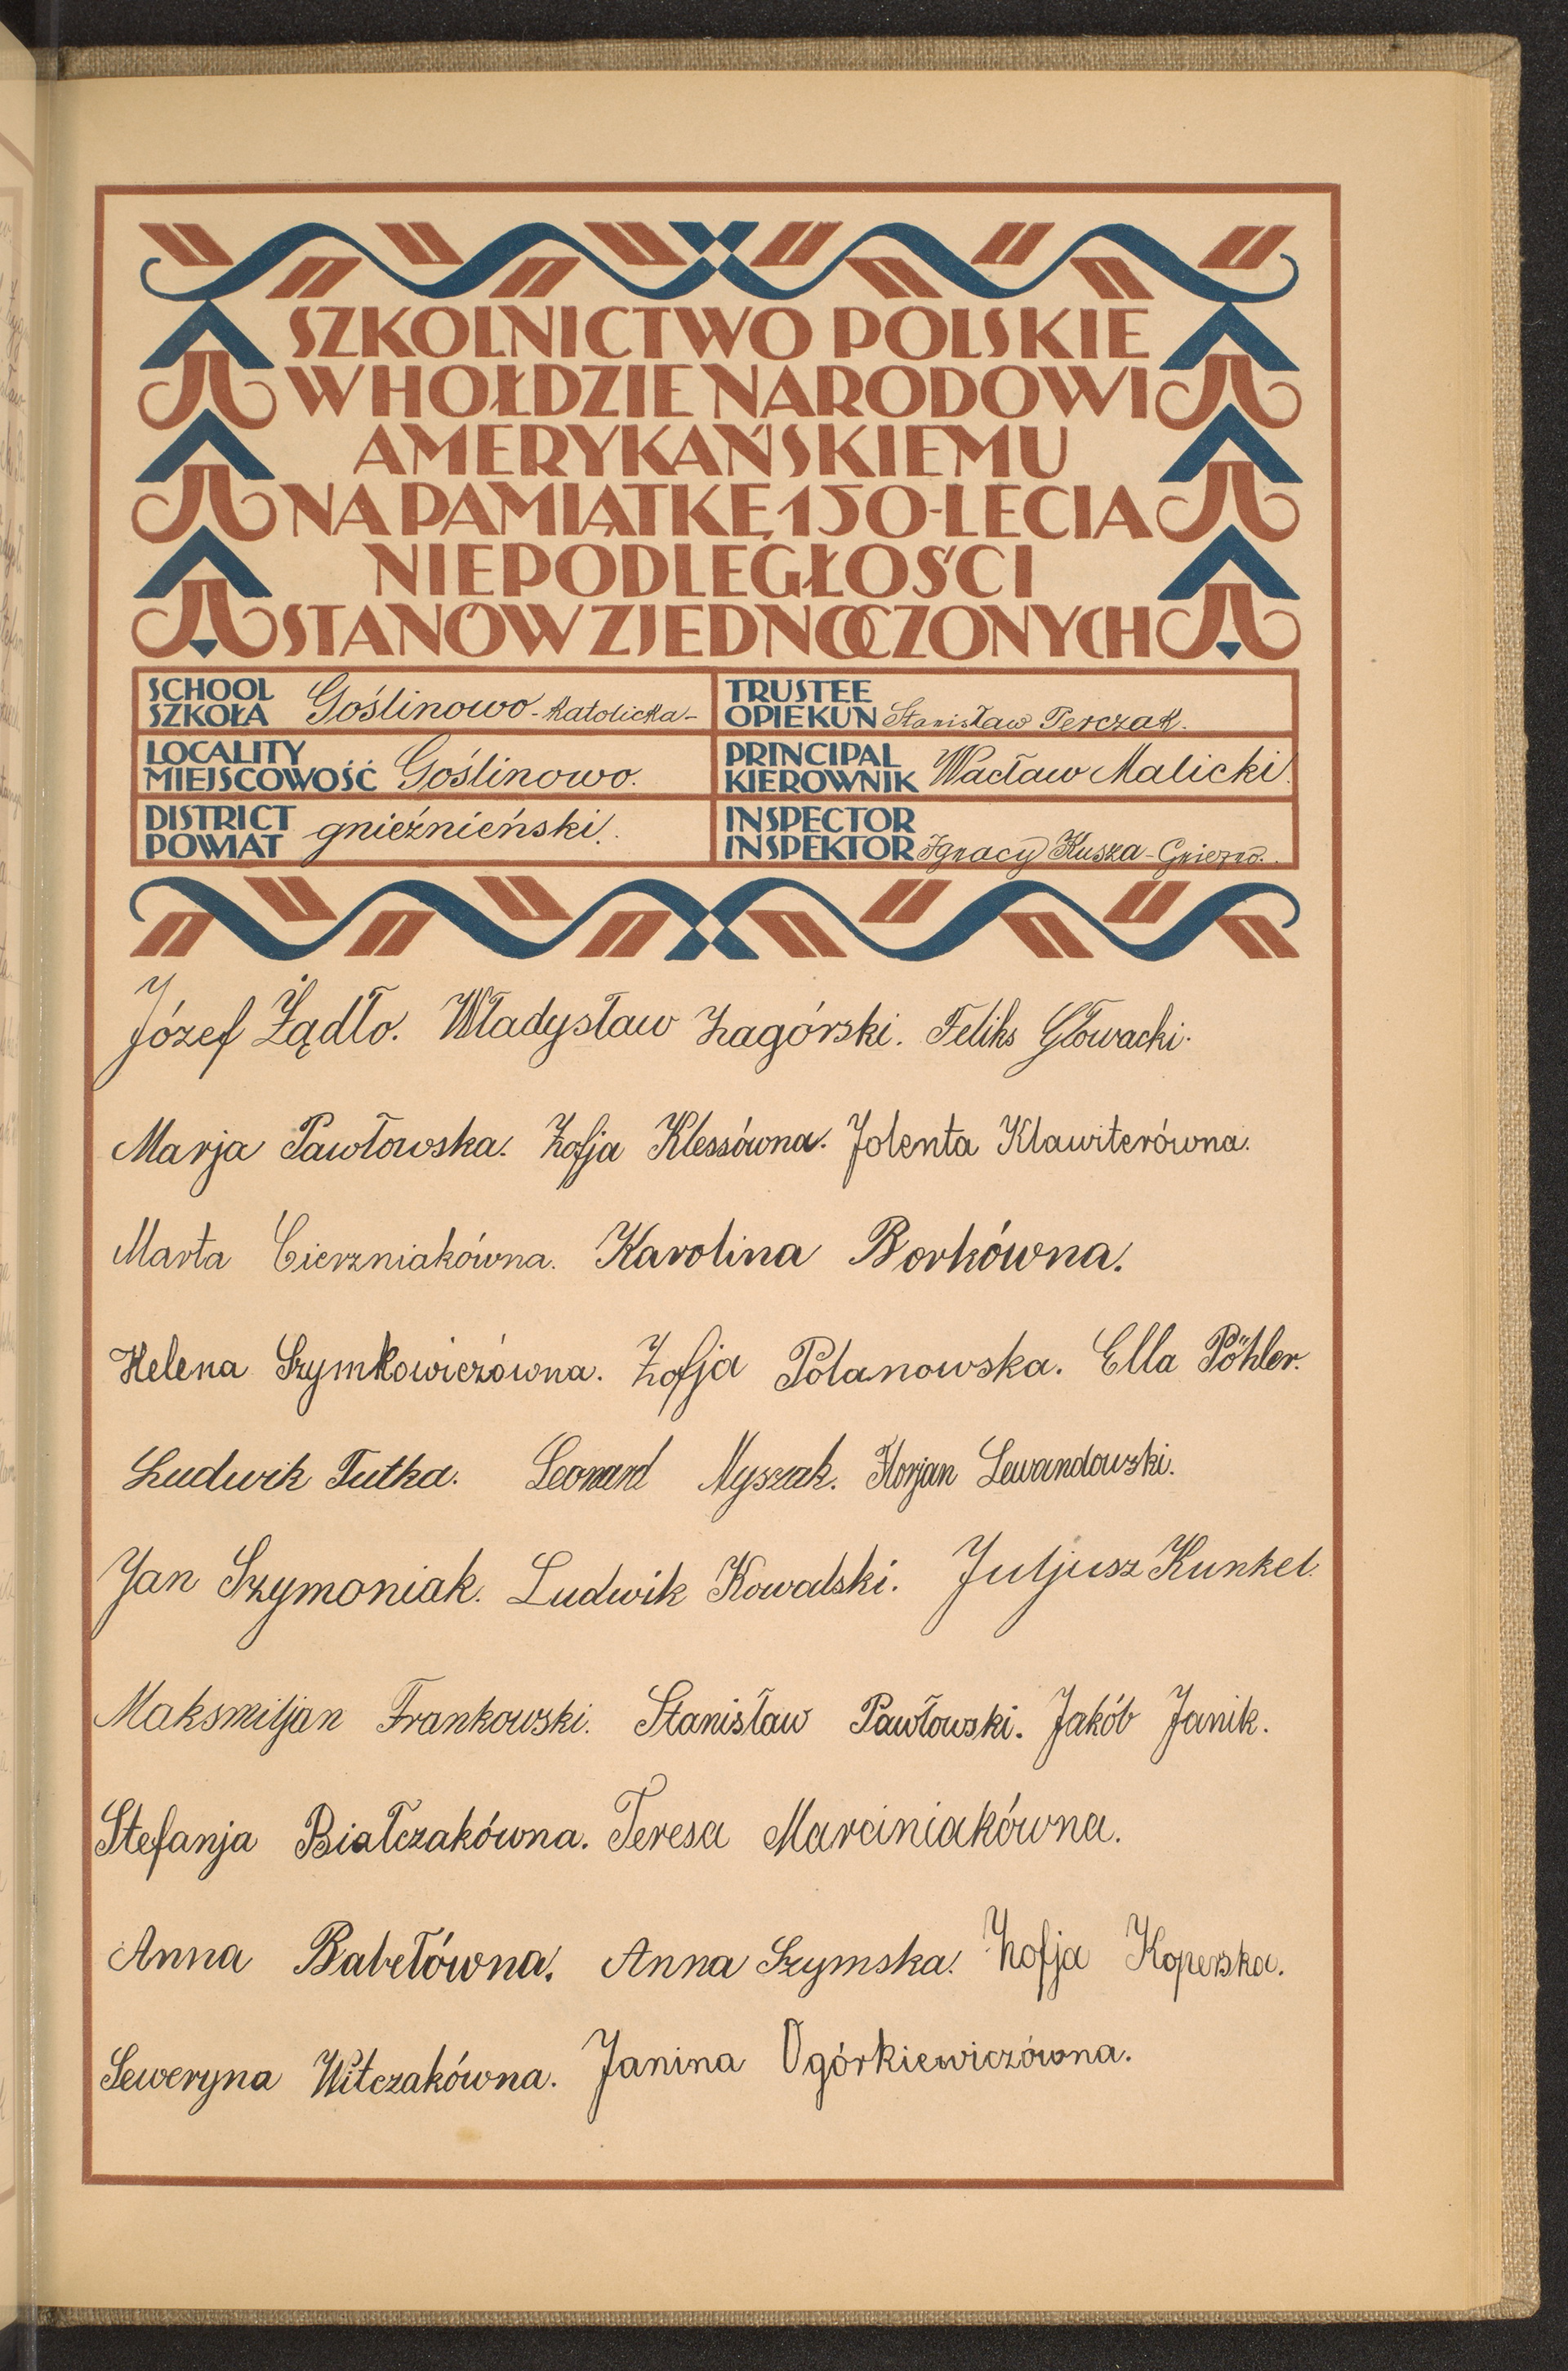 SZKOLNICTWO POLSKIE
W HOŁDZIE NARODOWI
AMERYKAŃSKIEMU
NA PAMIĄTKĘ 150-LECIA
NIEPODLEGŁOŚCI
STANÓW ZJEDNOCZONYCH
SCHOOL
SZKOŁA Goślinowo - katolicka -
TRUSTEE
OPIEKUN Stanisław Perczak.
LOCALITY
MIEJSCOWOŚĆ Goślinowo.
PRINCIPAL
KIEROWNIK Wacław Malicki.
DISTRICT
POWIAT gnieźnieński.
INSPECTOR
INSPEKTOR Ignacy Kusza - Gniezno.
Józef Żądło. Władysław Zagórski. Feliks Głowacki.
Marja Pawłowska. Zofja Klessówna. Jolenta Klawiterówna.
Marta Cierzniakówna. Karolina Borkówna.
Helena Szymkowiczówna. Zofja Polanowska. Ella Pöhler.
Ludwik Tutka. Leonard Myszak. Florjan Lewandowski.
Jan Szymoniak. Ludwik Kowalski. Juljusz Kunkel.
Maksmiljan Frankowski. Stanisław Pawłowski. Jakób Janik.
Stefanja Białczakówna. Teresa Marciniakówna.
Anna Babełówna. Anna Szymska. Zofja Koperska.
Seweryna Witczakówna. Janina Ogórkiewiczówna.